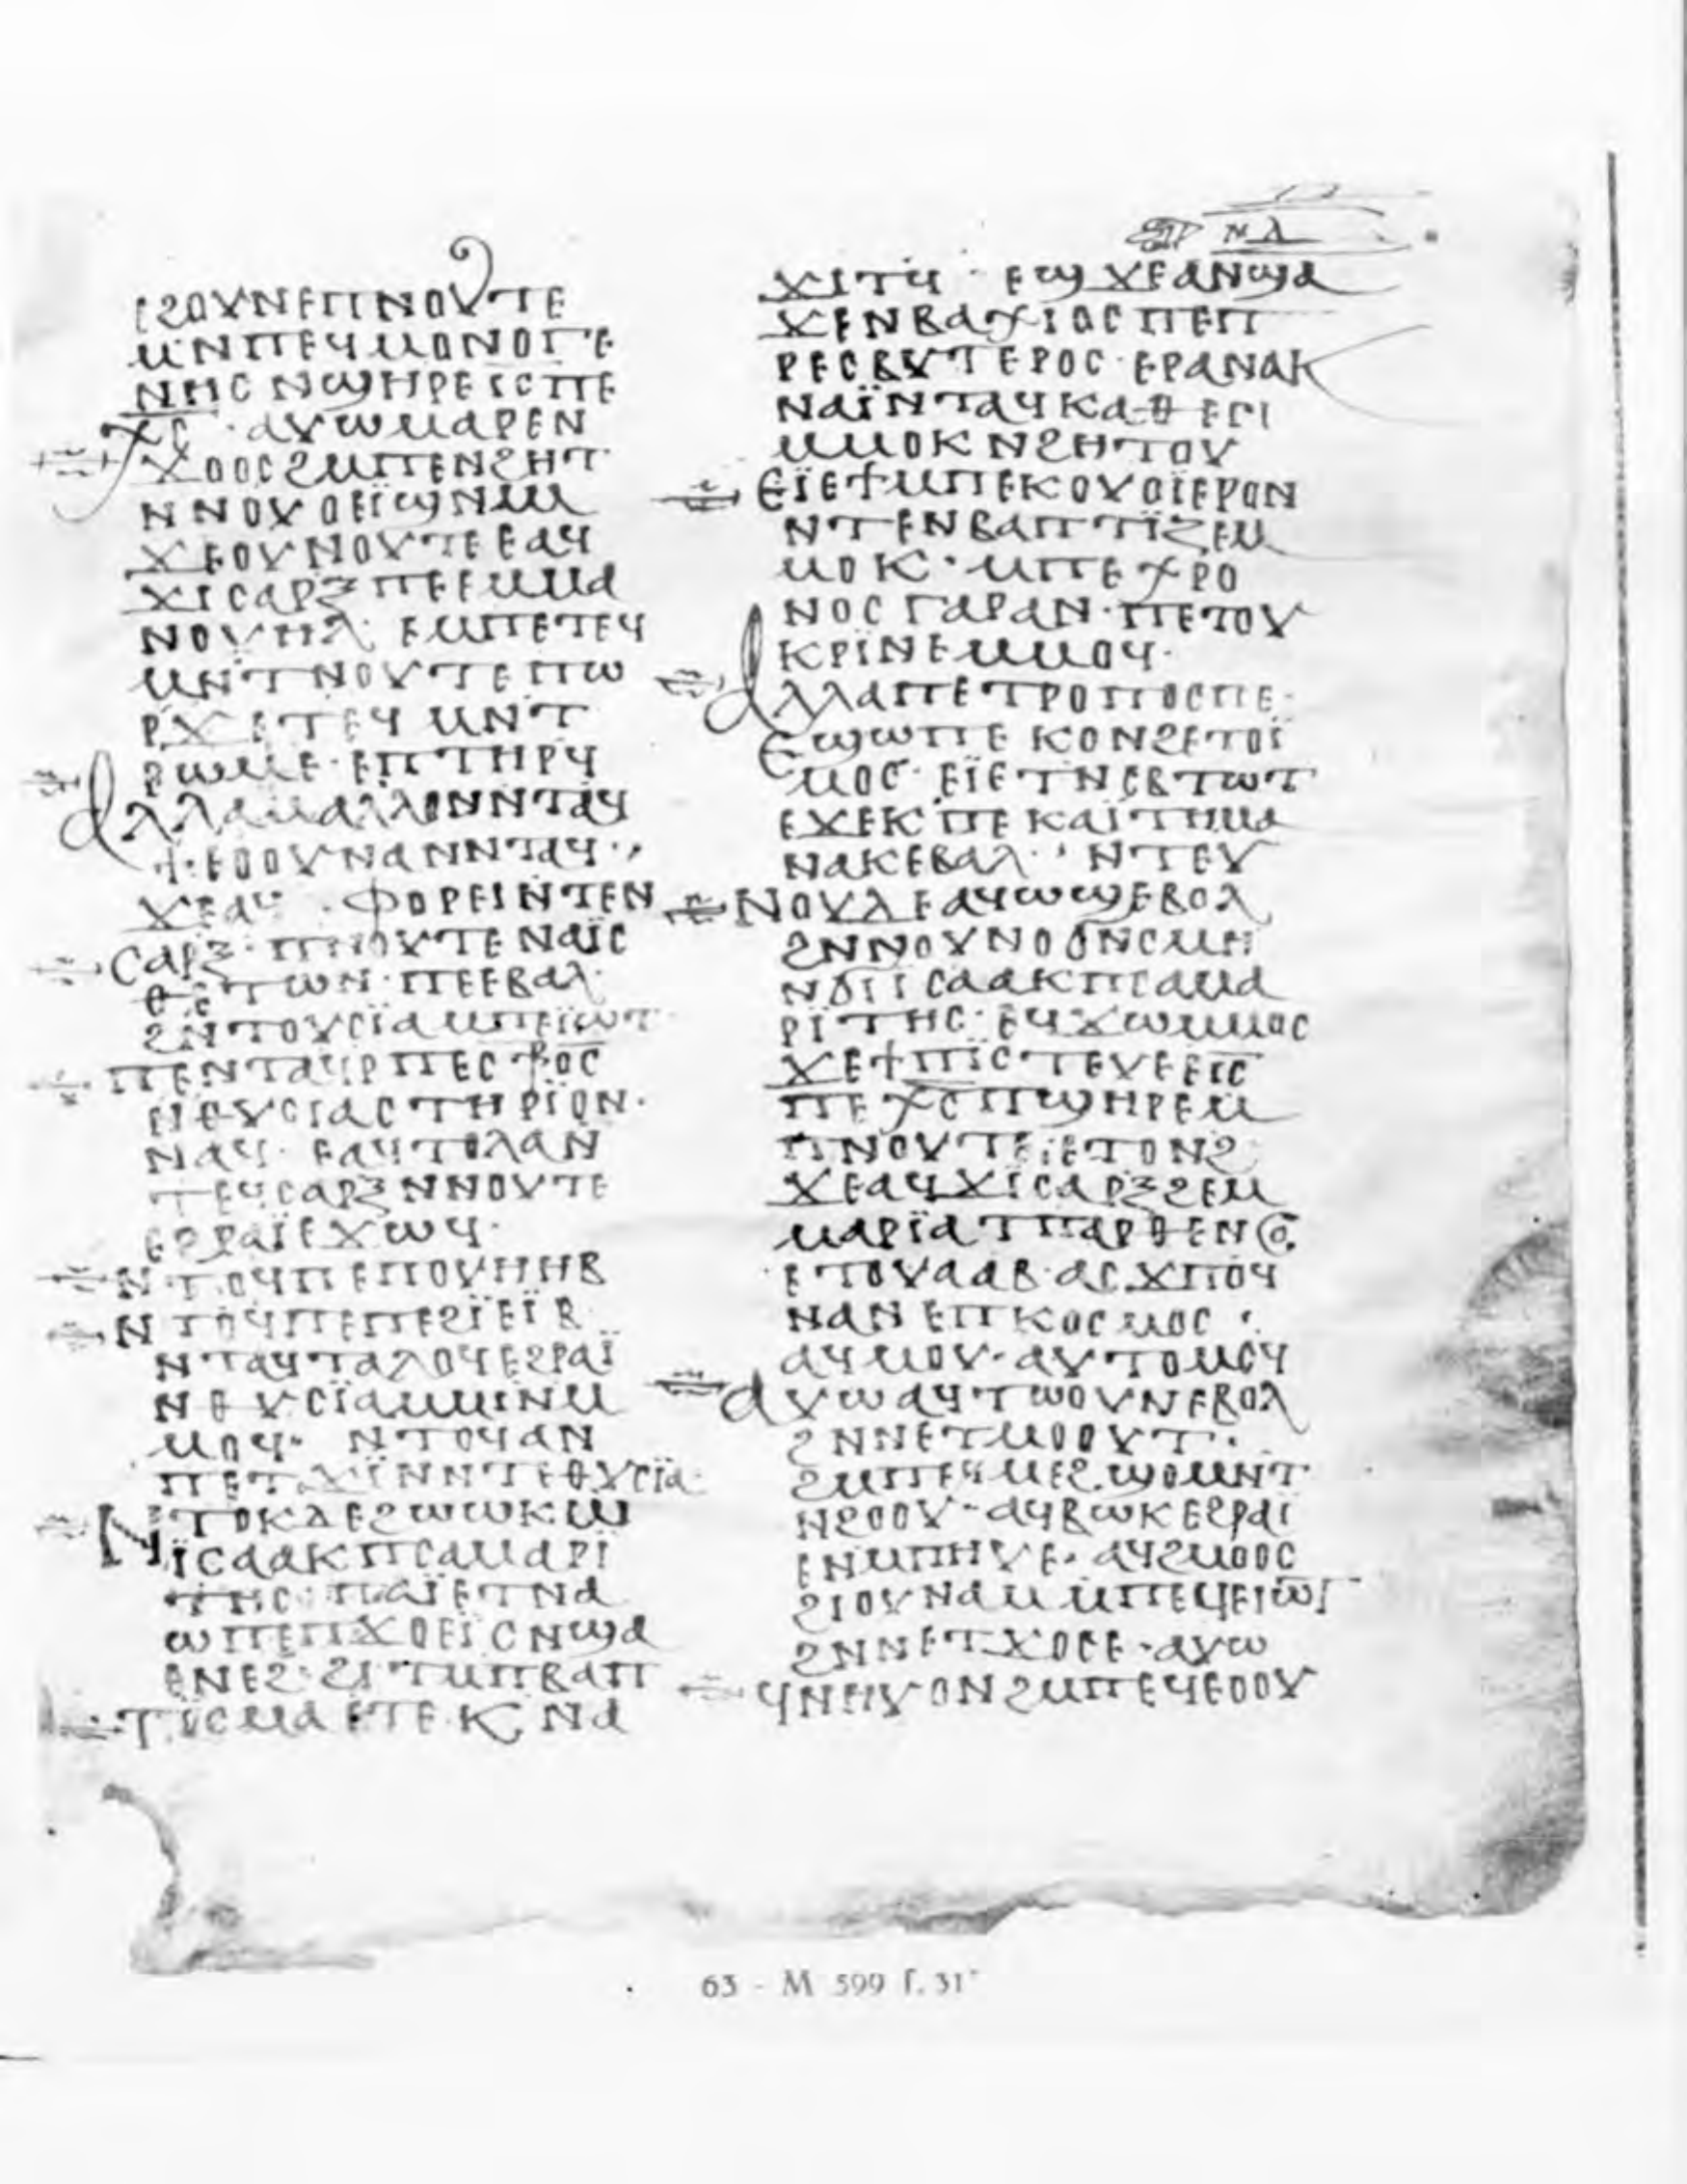 ⲙⲁ
ⲉϩⲟⲩⲛⲉⲡⲛⲟⲩⲧⲉ
ⲙⲛⲡⲉϥⲙⲟⲛⲟⲅⲉ
ⲛⲏⲥ ⲛϣⲏⲣⲉ ⲓⲥ ⲡⲉ
ⲭⲥ · ⲁⲩⲱ ⲙⲁⲣⲉⲛ
ϫⲟⲟⲥ ϩⲙⲡⲉⲛϩⲏⲧ
ⲛⲛⲟⲩⲟⲉⲓϣⲛⲓⲙ
ϫⲉⲟⲩⲛⲟⲩⲧⲉ ⲉⲁϥ
ϫⲓⲥⲁⲣⲝ ⲡⲉ ⲉⲙⲙⲁ
ⲛⲟⲩⲏⲗ · ⲉⲙⲡⲉⲧⲉϥ
ⲙⲛⲧⲛⲟⲩⲧⲉ ⲡⲱ
ⲣϫ ⲉⲧⲉϥⲙⲛⲧ
ⲣⲱⲙⲉ · ⲉⲡⲧⲏⲣϥ
ⲁⲗⲗⲁⲙⲁⲗⲗⲟⲛⲛⲧⲁϥ
ϯⲉⲟⲟⲩⲛⲁⲛⲛⲧⲁϥ ·
ϫⲉⲁϥ ⲫⲟⲣⲉⲓⲛⲧⲉⲛ
ⲥⲁⲣⲝ · ⲡⲛⲟⲩⲧⲉ ⲛⲁⲓ̈ⲥ
ⲑⲉⲧⲱⲛ · ⲡⲉⲉⲃⲟⲗ
ϩⲛⲧⲟⲩⲥⲓ̈ⲁ ⲙⲡⲉⲓ̈ⲱⲧ
ⲡⲉⲛⲧⲁϥⲣⲡⲉⲥⳁⲟⲥ
ⲛⲑⲩⲥⲓⲁⲥⲧⲏⲣⲓ̈ⲟⲛ ·
ⲛⲁϥ · ⲉⲁϥⲧⲁⲗⲁⲛ
ⲧⲉϥⲥⲁⲣⲝⲛⲛⲟⲩⲧⲉ
ⲉϩⲣⲁⲓ̈ⲉϫⲱϥ ·
ⲛⲧⲟϥⲡⲉⲡⲟⲩⲏⲏⲃ
ⲛⲧⲟϥⲡⲉⲡⲉϩⲓ̈ⲉⲓ̈ⲃ
ⲛⲧⲁϥⲧⲁⲗⲟϥⲉϩⲣⲁⲓ̈
ⲛⲑⲩⲥⲓ̈ⲁⲙⲙⲓⲛⲙ
ⲙⲟϥ · ⲛⲧⲟϥⲁⲛ
ⲡⲉⲧϫⲓ̈ⲛⲛⲧⲉⲑⲩⲥⲓ̈ⲁ
ⲛⲧⲟⲕⲇⲉϩⲱⲱⲕ ⲱ
ⲓ̈ⲥⲁⲁⲕ ⲡⲥⲁⲙⲁⲣⲓ
ⲧⲏⲥ · ⲡⲁⲓ̈ⲉⲧⲛⲁ
ⲱⲡⲉⲡϫⲟⲉⲓ̈ⲥ ⲛϣⲁ
ⲉⲛⲉϩ · ϩⲓⲧⲙⲡⲃⲁⲡ
ⲧⲓⲥⲙⲁ ⲉⲧⲉⲕⲛⲁ
ϫⲓⲧϥ · ⲉϣϫⲉⲁⲛϣⲁ
ϫⲉⲛⲃⲁⲭⲓⲟⲥ ⲡⲉⲡ
ⲣⲉⲥⲃⲩⲧⲉⲣⲟⲥ · ⲉⲣⲁⲛⲁⲕ
ⲛⲁⲓ̈ⲛⲧⲁϥⲕⲁⲑⲉⲅⲓ
ⲙⲙⲟⲕ ⲛϩⲏⲧⲟⲩ
ⲉⲓ̈ⲉϯⲙⲡⲉⲕⲟⲩⲟⲓ̈ⲉⲣⲟⲛ
ⲛⲧⲉⲛⲃⲁⲡⲧⲓ̈ⲍⲉⲙ
ⲙⲟⲕ · ⲙⲡⲉⲭⲣⲟ
ⲛⲟⲥ ⲅⲁⲣⲁⲛ · ⲡⲉⲧⲟⲩ
ⲕⲣⲓ̈ⲛⲉ ⲙⲙⲟϥ ·
ⲁⲗⲗⲁⲡⲉⲧⲣⲟⲡⲟⲥⲡⲉ ·
ⲉϣⲱⲡⲉ ⲕⲟⲛϩⲉⲧⲟⲓ̈
ⲙⲟⲥ · ⲉⲓ̈ⲉⲧⲛⲥⲃⲧⲱⲧ
ⲉϫⲉⲕⲡⲉⲕⲁⲓ̈ⲧⲏⲙⲁ
ⲛⲁⲕⲉⲃⲟⲗ · ⲛⲧⲉⲩ
ⲛⲟⲩⲇⲉⲁϥⲱϣⲉⲃⲟⲗ
ϩⲛⲛⲟⲩⲛⲟϭⲛⲥⲙⲏ
ⲛϭⲓⲓⲥⲁⲁⲕⲡⲥⲁⲙⲁ
ⲣⲓ̈ⲧⲏⲥ · ⲉϥϫⲱⲙⲙⲟⲥ
ϫⲉϯⲡⲓ̈ⲥⲧⲉⲩⲉⲉⲓⲥ
ⲡⲉⲭⲥⲡϣⲏⲣⲉⲙ
ⲡⲛⲟⲩⲧⲉ ⲉⲧⲟⲛϩ
ϫⲉⲁϥϫⲓ̈ⲥⲁⲣⲝϩⲉⲙ
ⲙⲁⲣⲓ̈ⲁ ⲧⲡⲁⲣⲑⲉⲛⲟⲥ
ⲉⲧⲟⲩⲁⲁⲃ · ⲁⲥϫⲡⲟϥ
ⲛⲁⲛ ⲉⲡⲕⲟⲥⲙⲟⲥ ·
ⲁϥⲙⲟⲩ · ⲁⲩⲧⲟⲙⲥϥ
ⲁⲩⲱⲁϥⲧⲱⲟⲩⲛⲉⲃⲟⲗ
ϩⲛⲛⲉⲧⲙⲟⲟⲩⲧ ·
ϩⲙⲡⲉϥⲙⲉϩϣⲟⲙⲛⲧ
ⲛϩⲟⲟⲩ · ⲁϥⲃⲱⲕ ⲉϩⲣⲁⲓ̈
ⲉⲛⲙⲡⲏⲩⲉ · ⲁϥϩⲙⲟⲟⲥ
ϩⲓⲟⲩⲛⲁⲙ ⲙⲡⲉϥⲉⲓⲱⲧ
ϩⲛⲛⲉⲧϫⲟⲥⲉ · ⲁⲩⲱ
ϥⲛⲏⲩ ⲟⲛ ϩⲙⲡⲉϥⲉⲟⲟⲩ
63 - M 599 f. 31ʳ